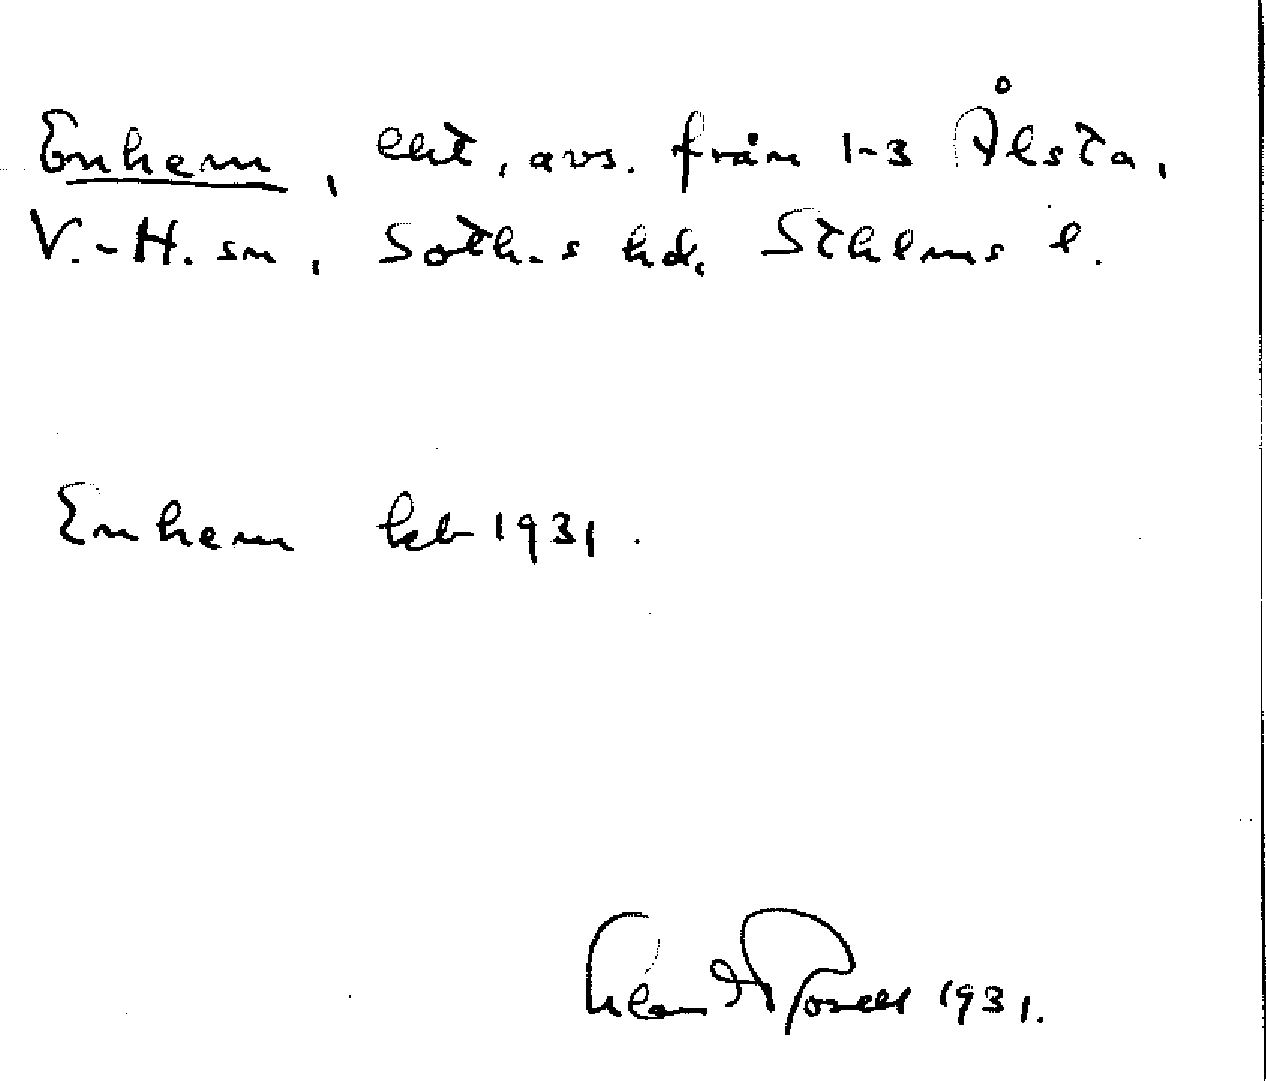 Enhem, lht, avs. från 1-3 Ålsta,
V.-H. sn, Soth-s hd. Sthlms l.
Enhem kb 1931.
1931.